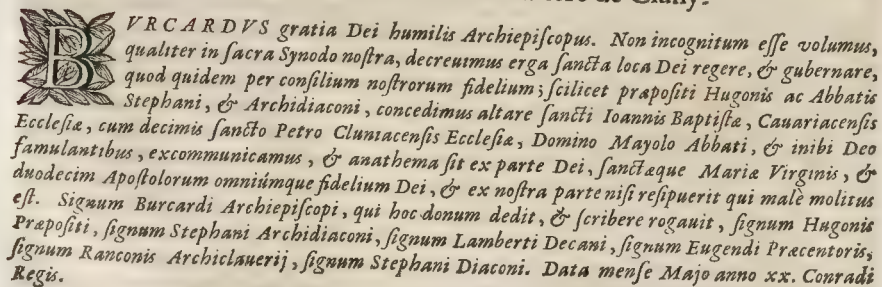 BVRCARDVS gratia Dei humilis Archiepiscopus. Non incognitum esse volumus,
qualiter in sacra Synodo nostra, decreuimus erga sancta loca Dei regere, & gubernare,
quod quidem per consilium nostrorum fidelium; scilicet præpositi Hugonis ac Abbatis
Stephani, & Archidiaconi, concedimus altare sancti Ioannis Baptistæ, Cauariacensis
Ecclesiæ, cum decimis sancto Petro Cluniacensis Ecclesiæ, Domino Mayolo Abbati, & inibi Deo
famulantibus, excommunicamus, & anathema sit ex parte Dei, sanctæque Mariæ Virginis, &
duodecim Apostolorum omniúmque fidelium Dei, & ex nostra parte nisi resipuerit qui male molitus
est. Signum Burcardi Archiepiscopi, qui hoc donum dedit, & scribere rogauit, signum Hugonis
Præpositi, signum Stephani Archidiaconi, signum Lamberti Decani, signum Eugendi Præcentoris,
signum Ranconis Archiclauerij, signum Stephani Diaconi. Data mense Majo anno xx. Conradi
Regis.